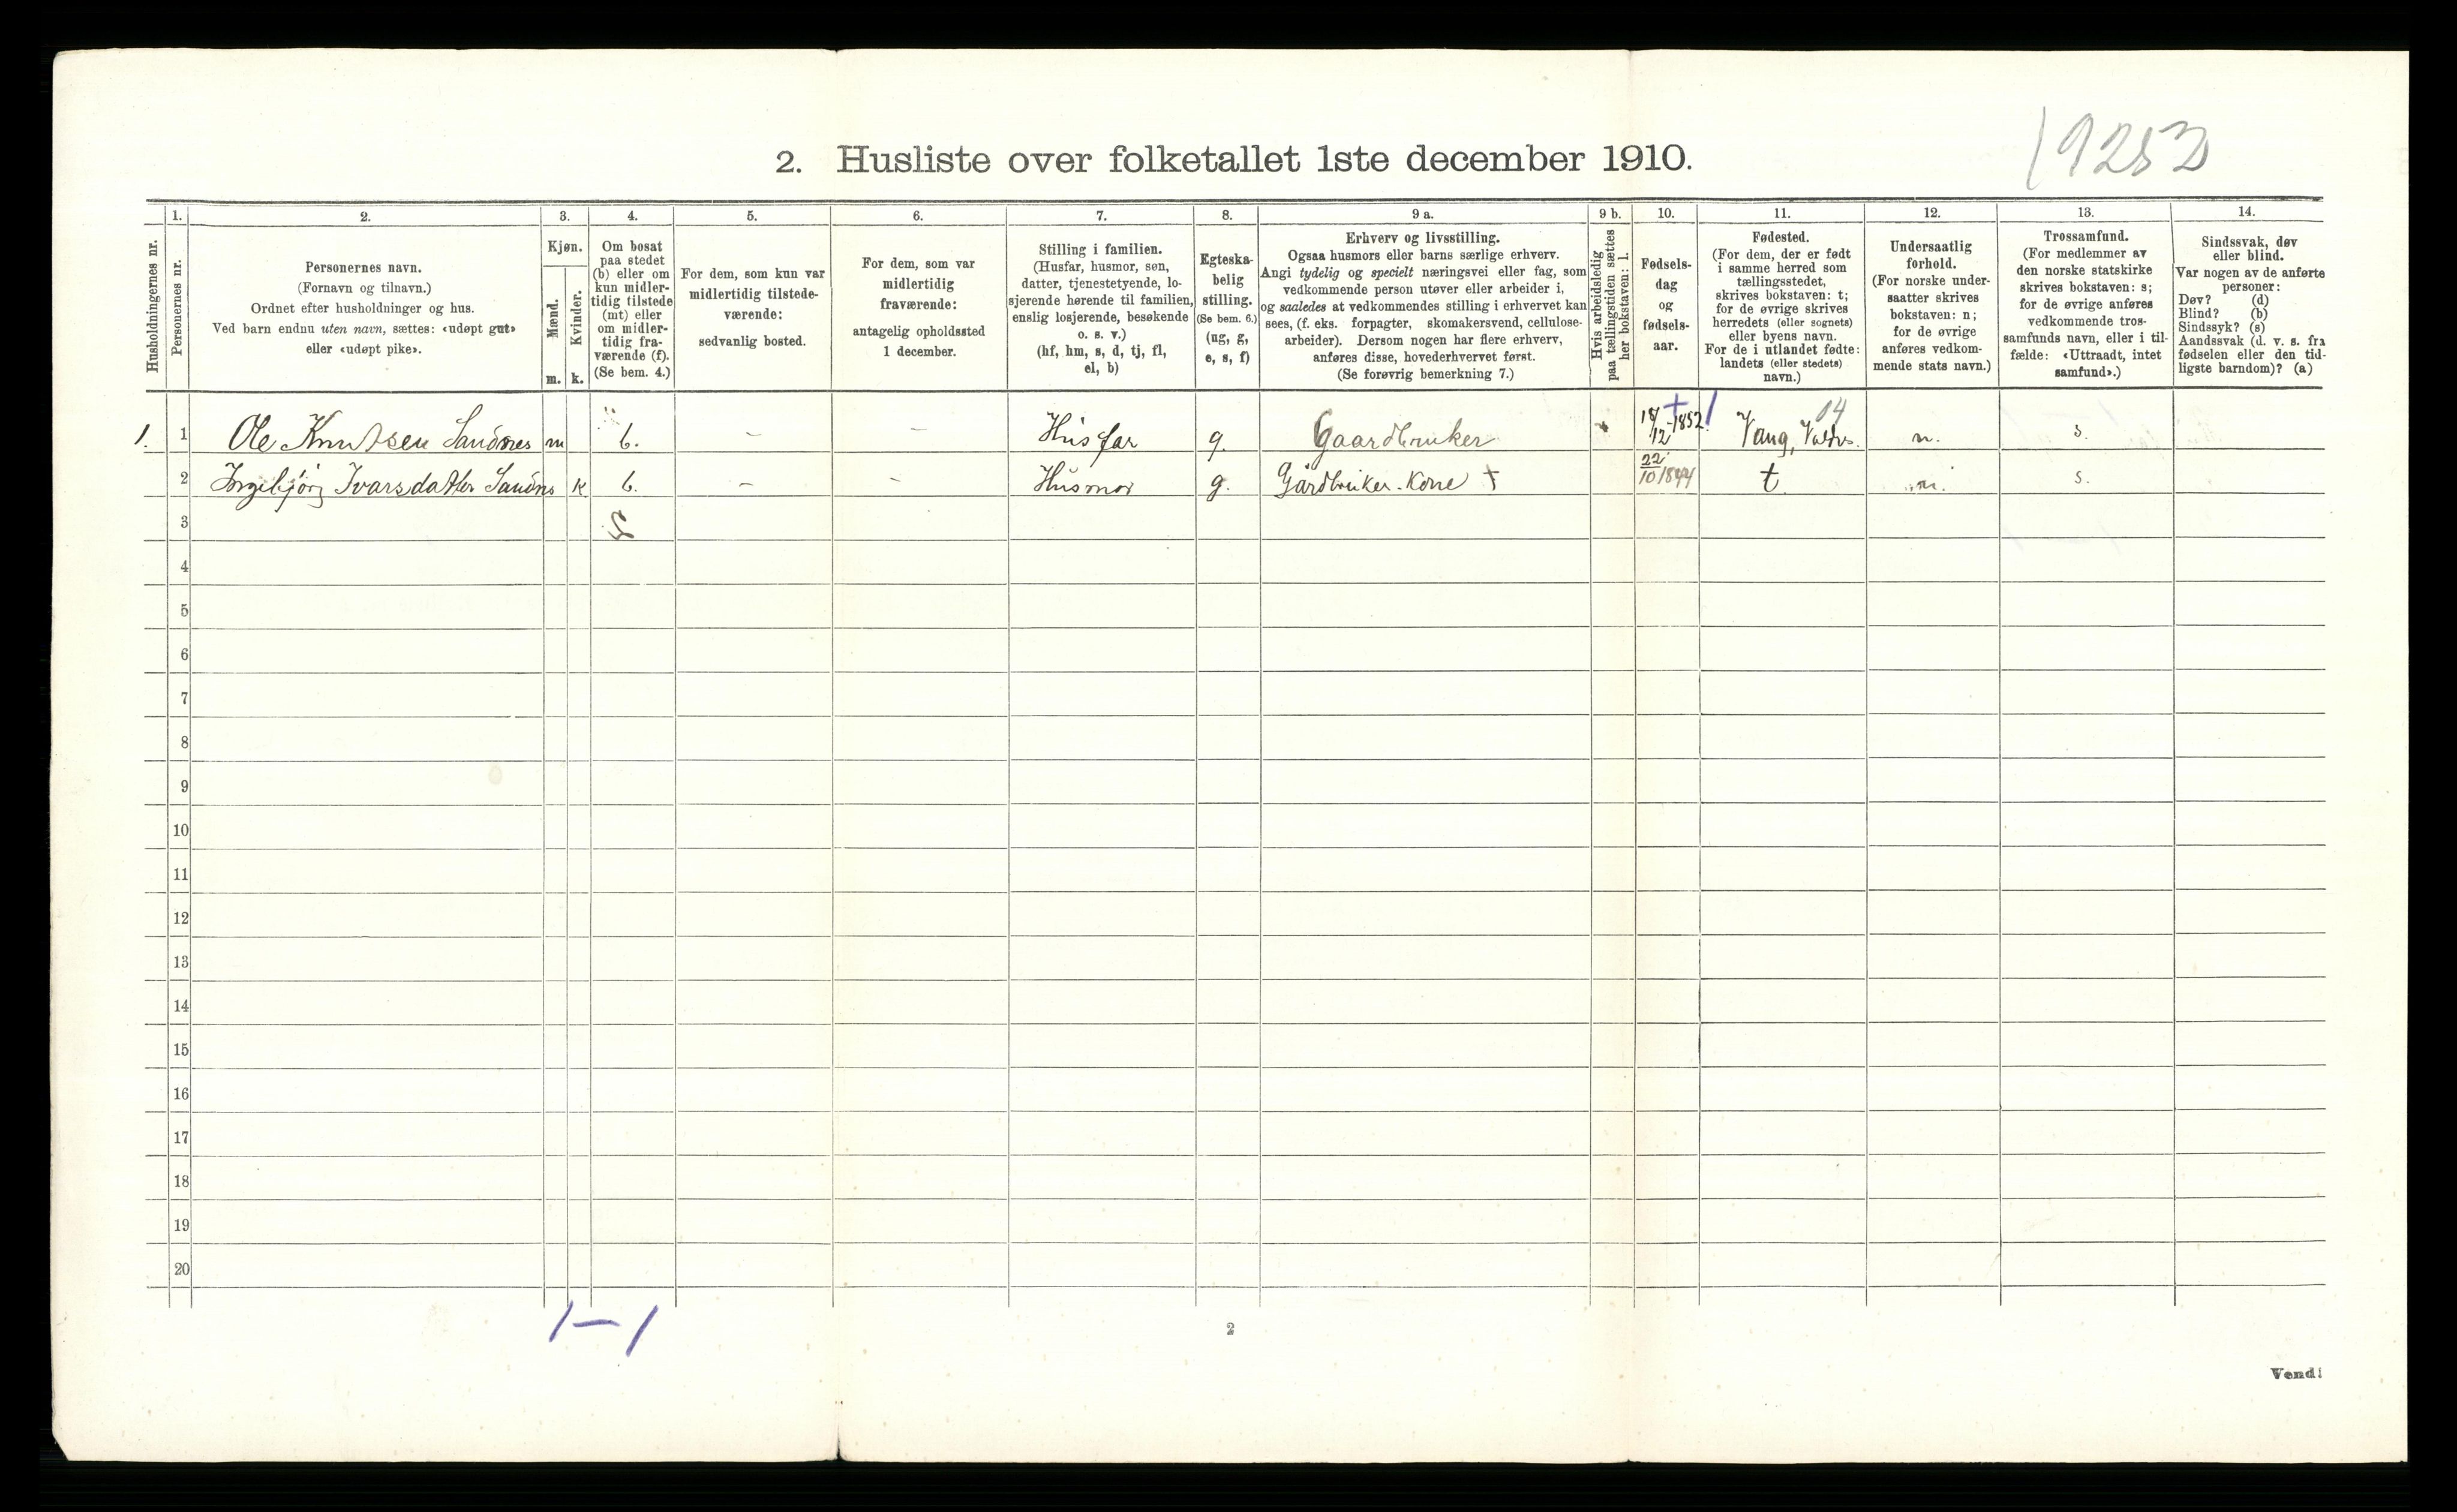 19253
2. Husliste over folketallet 1ste december 1910.
Husholdningernes nr.
1.
Personernes nr.
2.
Personernes navn.
(Fornavn og tilnavn.)
Ordnet efter husholdninger og hus.
Ved barn endnu uten navn, sættes: «udøpt gut»
eller «udøpt pike».
3.
Kjøn.
Mænd.
m.
Kvinder.
k.
4.
Om bosat
paa stedet
(b) eller om
kun midler-
tidig tilstede
(mt) eller
om midler-
tidig fra-
værende (f).
(Se bem. 4.)
5.
For dem, som kun var
midlertidig tilstede-
værende:
sedvanlig bosted.
6.
For dem, som var
midlertidig
fraværende:
antagelig opholdssted
1 december.
7.
Stilling i familien.
(Husfar, husmor, søn,
datter, tjenestetyende, lo-
sjerende hørende til familien,
enslig losjerende, besøkende
o. s. v.)
(hf, hm, s, d, tj, fl,
el, b)
8.
Egteska-
belig
stilling.
(Se bem. 6.)
(ug, g,
e, s, f)
9 a.
Erhverv og livsstilling.
Ogsaa husmors eller barns særlige erhverv.
Angi tydelig og specielt næringsvei eller fag, som
vedkommende person utøver eller arbeider i,
og saaledes at vedkommendes stilling i erhvervet kan
sees, (f. eks. forpagter, skomakersvend, cellulose-
arbeider). Dersom nogen har flere erhverv,
anføres disse, hovederhvervet først.
(Se forøvrig bemerkning 7.)
9 b.
Hvis arbeidsledig
paa tællingstiden sættes
her bokstaven: l.
10.
Fødsels-
dag
og
fødsels-
aar.
11.
Fødested.
(For dem, der er født
i samme herred som
tællingsstedet,
skrives bokstaven: t;
for de øvrige skrives
herredets (eller sognets)
eller byens navn.
For de i utlandet fødte:
landets (eller stedets)
navn.)
12.
Undersaatlig
forhold.
(For norske under-
saatter skrives
bokstaven: n;
for de øvrige
anføres vedkom-
mende stats navn.)
13.
Trossamfund.
(For medlemmer av
den norske statskirke
skrives bokstaven: s;
for de øvrige anføres
vedkommende tros-
samfunds navn, eller i til-
fælde: «Uttraadt, intet
samfund».)
14.
Sindssvak, døv
eller blind.
Var nogen av de anførte
personer:
Døv? (d)
Blind? (b)
Sindssyk? (s)
Aandssvak (d. v. s. fra
fødselen eller den tid-
ligste barndom)? (a)
1. 1 Ole Knutsen Sandnes m b. - - Husfar g. Gaardbruker 18/12-1852 Vang, Valdrs. 04 n. s.
2 Ingebjørg Ivarsdatter Sandns k b. - - Husmor g. Gårdbruker-Kone 22/10 1844 t n. s.
3
4
5
6
7
8
9
10
11
12
13
14
15
16
17
18
19
20
1-1
2
Vend!